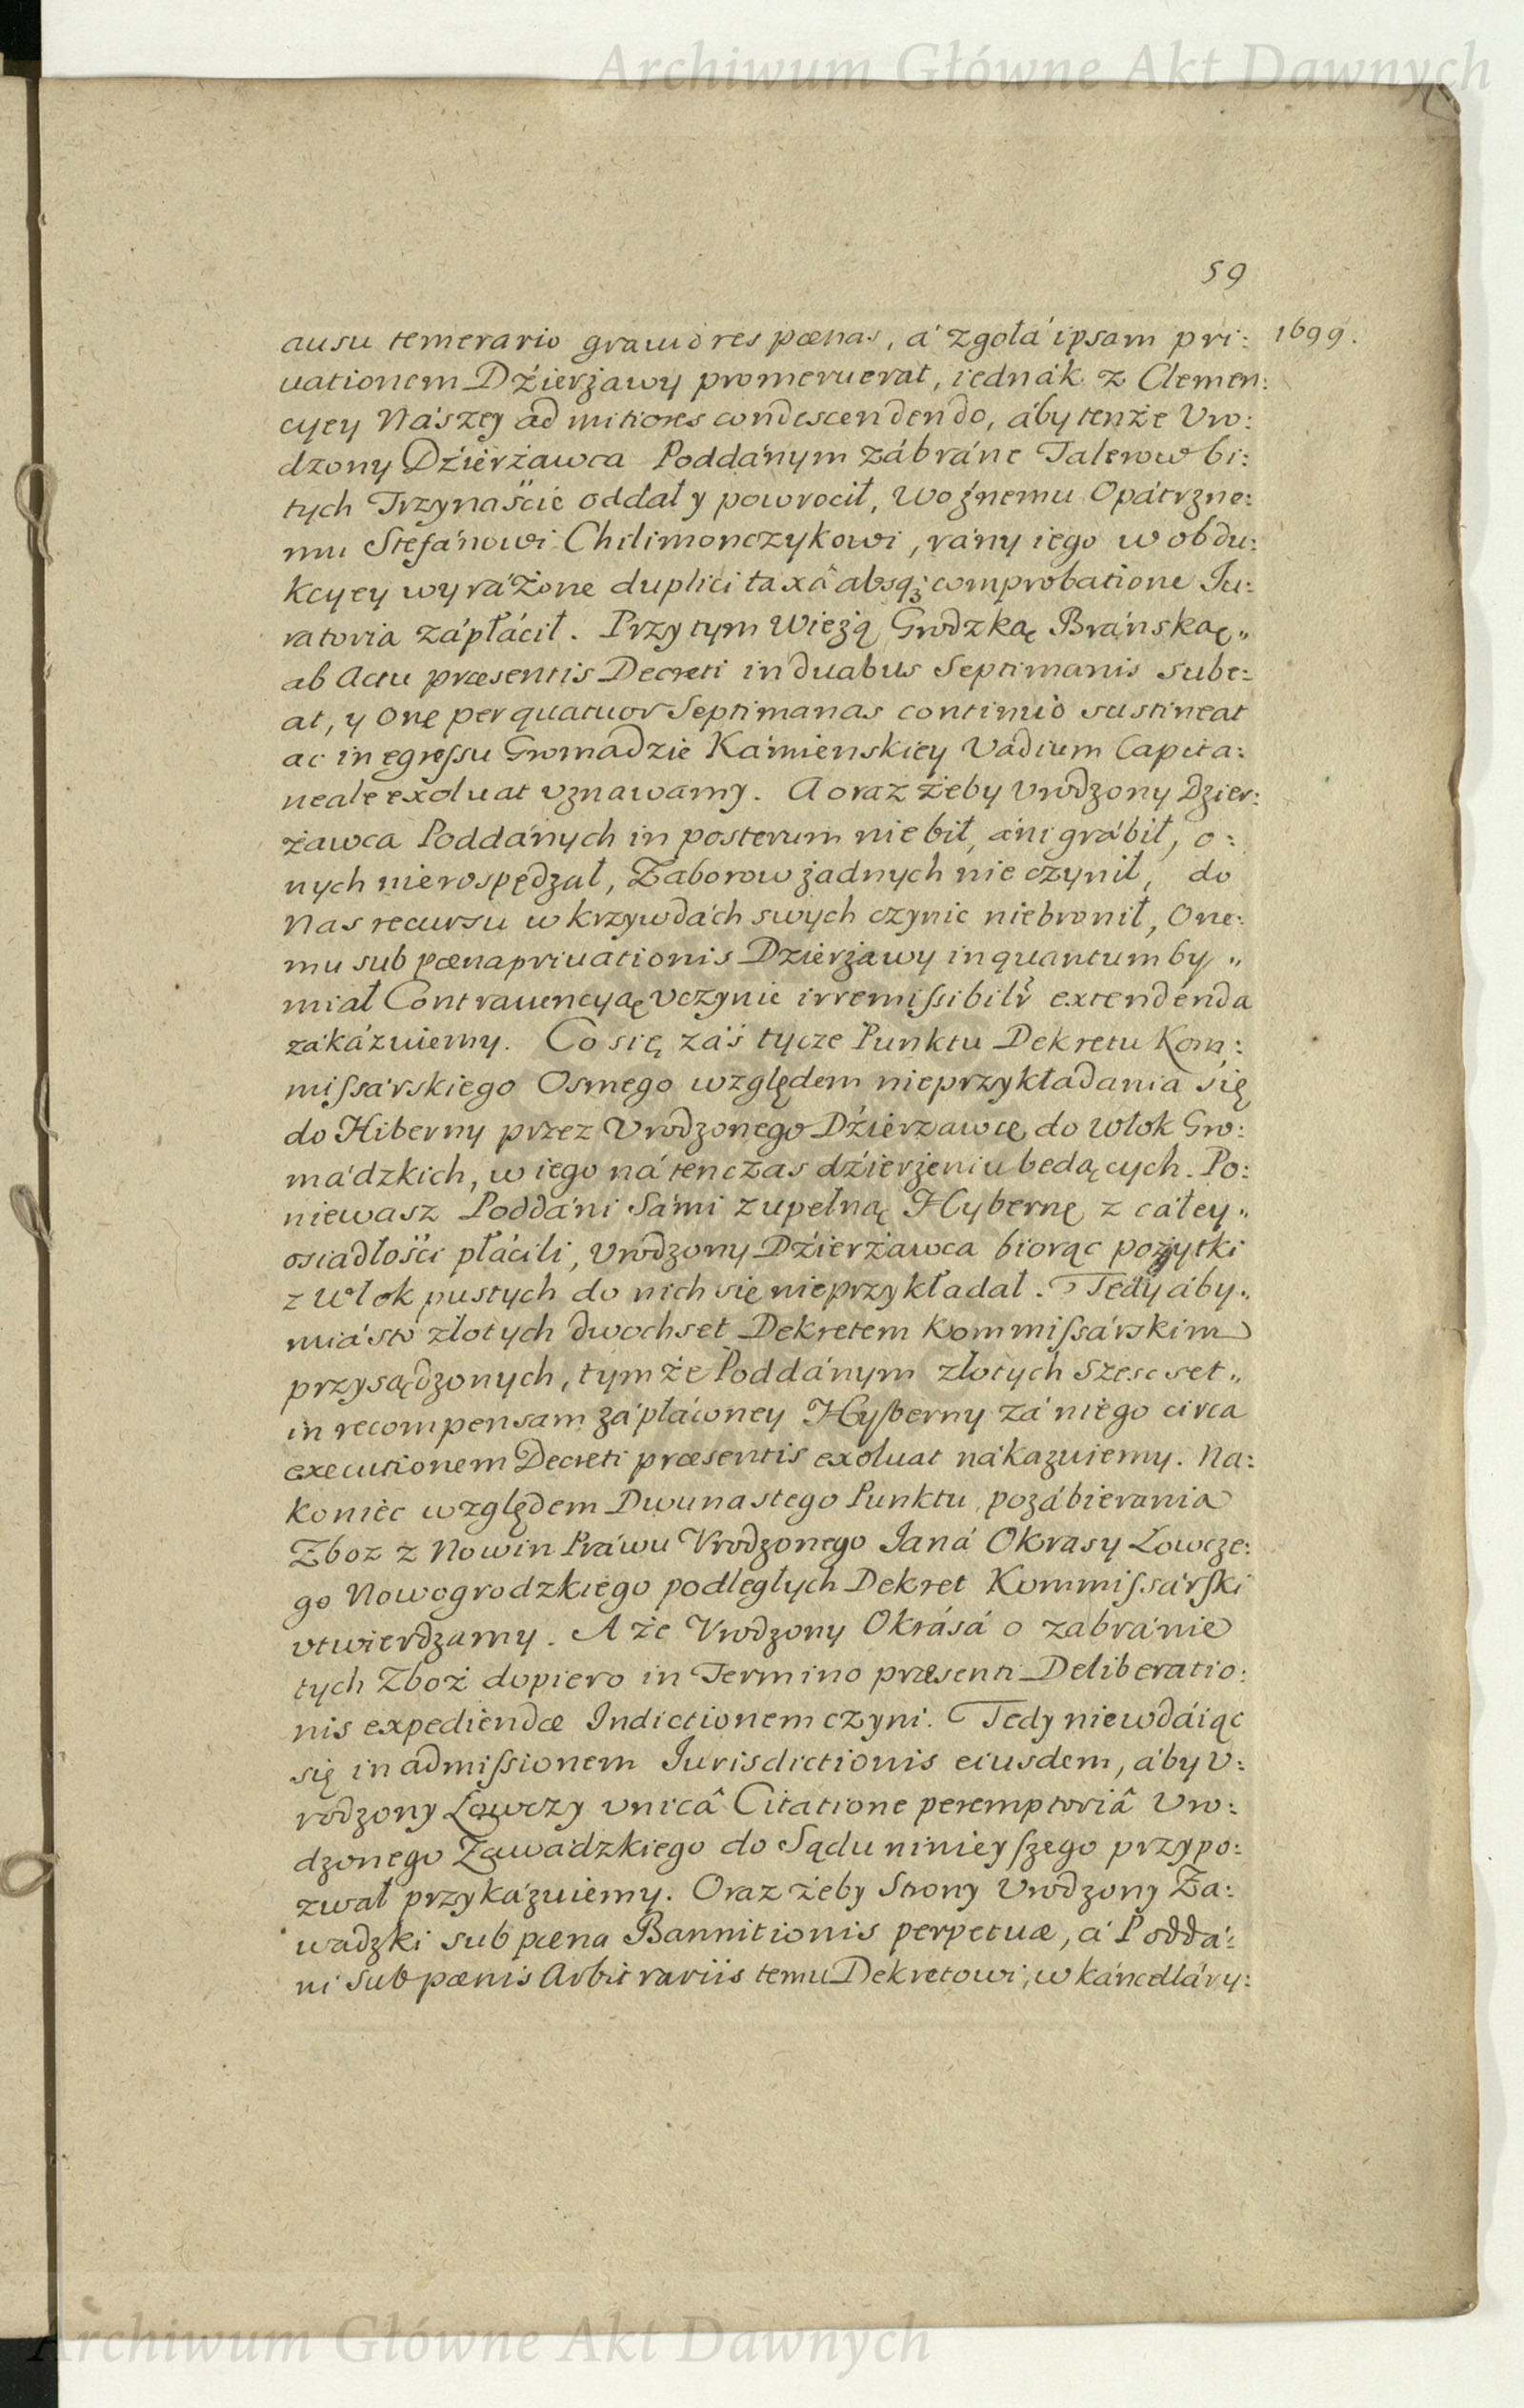 Archiwum Główne Akt Dawnych
59
1699.
ausu temerario graviores pœnas, á zgołá ipsam pri:
uationem Dźierżawy promeruerat, iednák z Clemen:
cyey Nászey ad mitiores condescendendo, áby tenże Vro:
dzony Dźierżawca Poddánym zábráne Talerow bi:
tych Trzynaśćie oddał y powrocił, Woźnemu Opátrzne:
mu Stefánowi Chilimonczykowi, rány iego w obdu:
kcyey wyráżone duplici taxâ absq; comprobatione Iu:
ratoria zápłáćił. Przytym Wieżą Grodzką Bránską„
ab Actu præsentis Decreti in duabus Septimanis sube:
at, y Onę per quatuor Septimanas continuò sustineat
ac in egreſsu Gromadzie Kámienskiey Vadium Capita:
neale exoluat vznawamy. A oraz żeby Vrodzony Dzier:
żawca Poddánych in posterum nie bił, áni grábił, o:
nych nierospędzał, Zaborow żadnych nie czynił, do
Nas recursu w krzywdách swych czynic niebronił, One:
mu sub pœna priuationis Dzierżawy in quantum by„
miał Contrauencyą vczynic irremiſsibilr̃ extendenda
zákázuiemy. Co się záś tycze Punktu Dekretu Kom:
miſsárskiego Osmego względem nieprzykładania się
do Hiberny przez Vrodzonego Dźierzawcę do Włok Gro:
mádzkich, w iego ná tenczas dźierżeniu bedących. Po:
niewasz Poddáni Sámi zupełną Hybernę z cáłey„
osiádłośći płáćili, Vrodzony Dźierżawca biorąc pożytki
z Włok pustych do nich się nieprzykładał. Tedy áby„
miásto złotych dwochset Dekretem Kommiſsárskim
przysądzonych, tymże Poddánym złotych Szescset„
in recompensam zápłáconey Hyberny zá niego circa
executionem Decreti præsentis exoluat nákazuiemy. Na:
koniec względem Dwunastego Punktu pozábierania
Zboz z Nowin Práwu Vrodzonego Janá Okrasy Łowcze:
go Nowogrodzkiego podległych Dekret Kommiſsárſki
vtwierdzamy. A że Vrodzony Okrásá o zabránie
tych Zboż dopiero in Termino præsenti Deliberatio:
nis expediendæ Indictionem czyni. Tedy niewdáiąc
się in admiſsionem Iurisdictionis eiusdem, áby V:
rodzony Łowczy vnicâ Citatione peremptoriâ Vro:
dzonego Zawadzkiego do Sądu ninieyſzego przypo:
zwał przykázuiemy. Oraz żeby Strony Vrodzony Za:
wadzki sub pœna Bannitionis perpetuæ, á Poddá:
ni sub pœnis Arbitrariis temu Dekretowi, w káncelláry:
Archiwum Główne Akt Dawnych